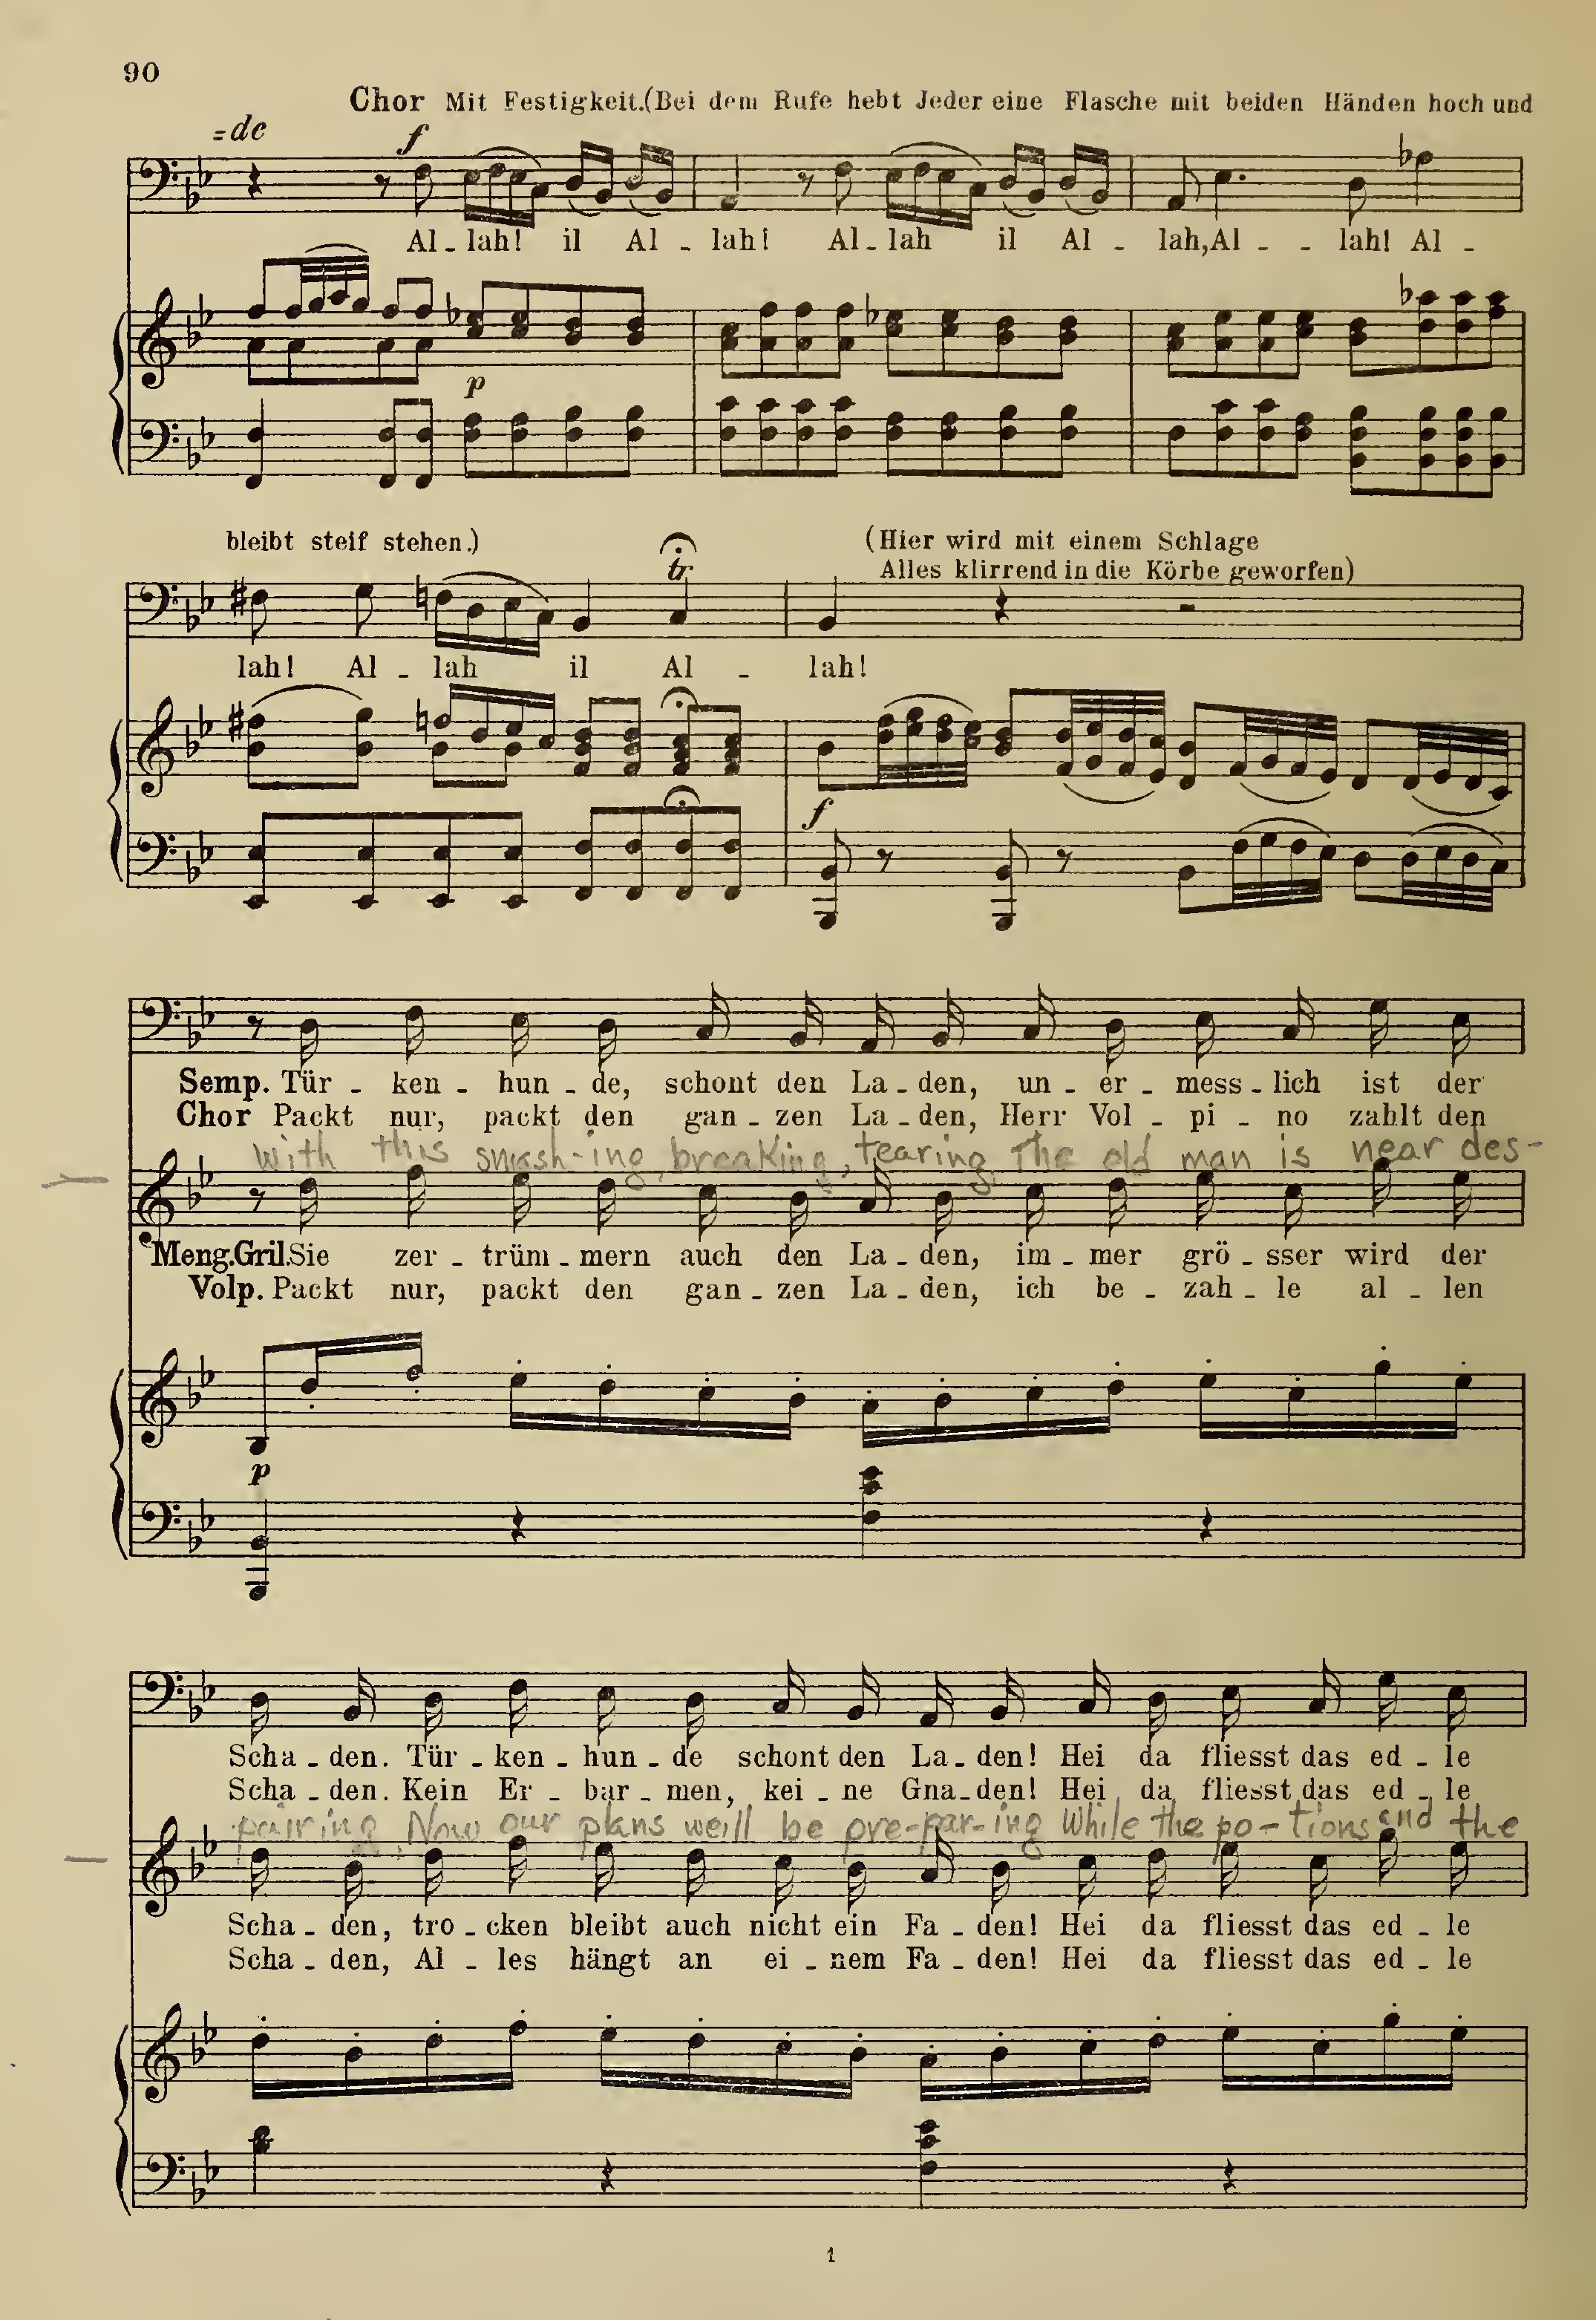 90
Chor Mit Festigkeit.(Bei dem Rufe hebt Jeder eine Flasche mit beiden Händen hoch und
=de
f
Al - lah! il Al - lah! Al - lah il Al - lah, Al - - lah! Al -
p
bleibt steif stehen.)
(Hier wird mit einem Schlage
Alles klirrend in die Körbe geworfen)
tr
lah! Al - lah il Al - lah!
f
Semp. Tür - ken - hun - de, schont den La - den, un - er - mess - lich ist der
Chor Packt nur, packt den gan - zen La - den, Herr Vol - pi - no zahlt den
with this smash-ing, breaking, tearing, The old man is near des-
Meng.Gril.Sie zer - trüm - mern auch den La - den, im - mer grö - sser wird der
Volp. Packt nur, packt den gan - zen La - den, ich be - zah - le al - len
p
Scha - den. Tür - ken - hun - de schont den La - den! Hei da fliesst das ed - le
Scha - den. Kein Er - bar - men, kei - ne Gna - den! Hei da fliesst das ed - le
pairing, Now our plans we'll be pre-par-ing While the po-tions and the
Scha - den, tro - cken bleibt auch nicht ein Fa - den! Hei da fliesst das ed - le
Scha - den, Al - les hängt an ei - nem Fa - den! Hei da fliesst das ed - le
1